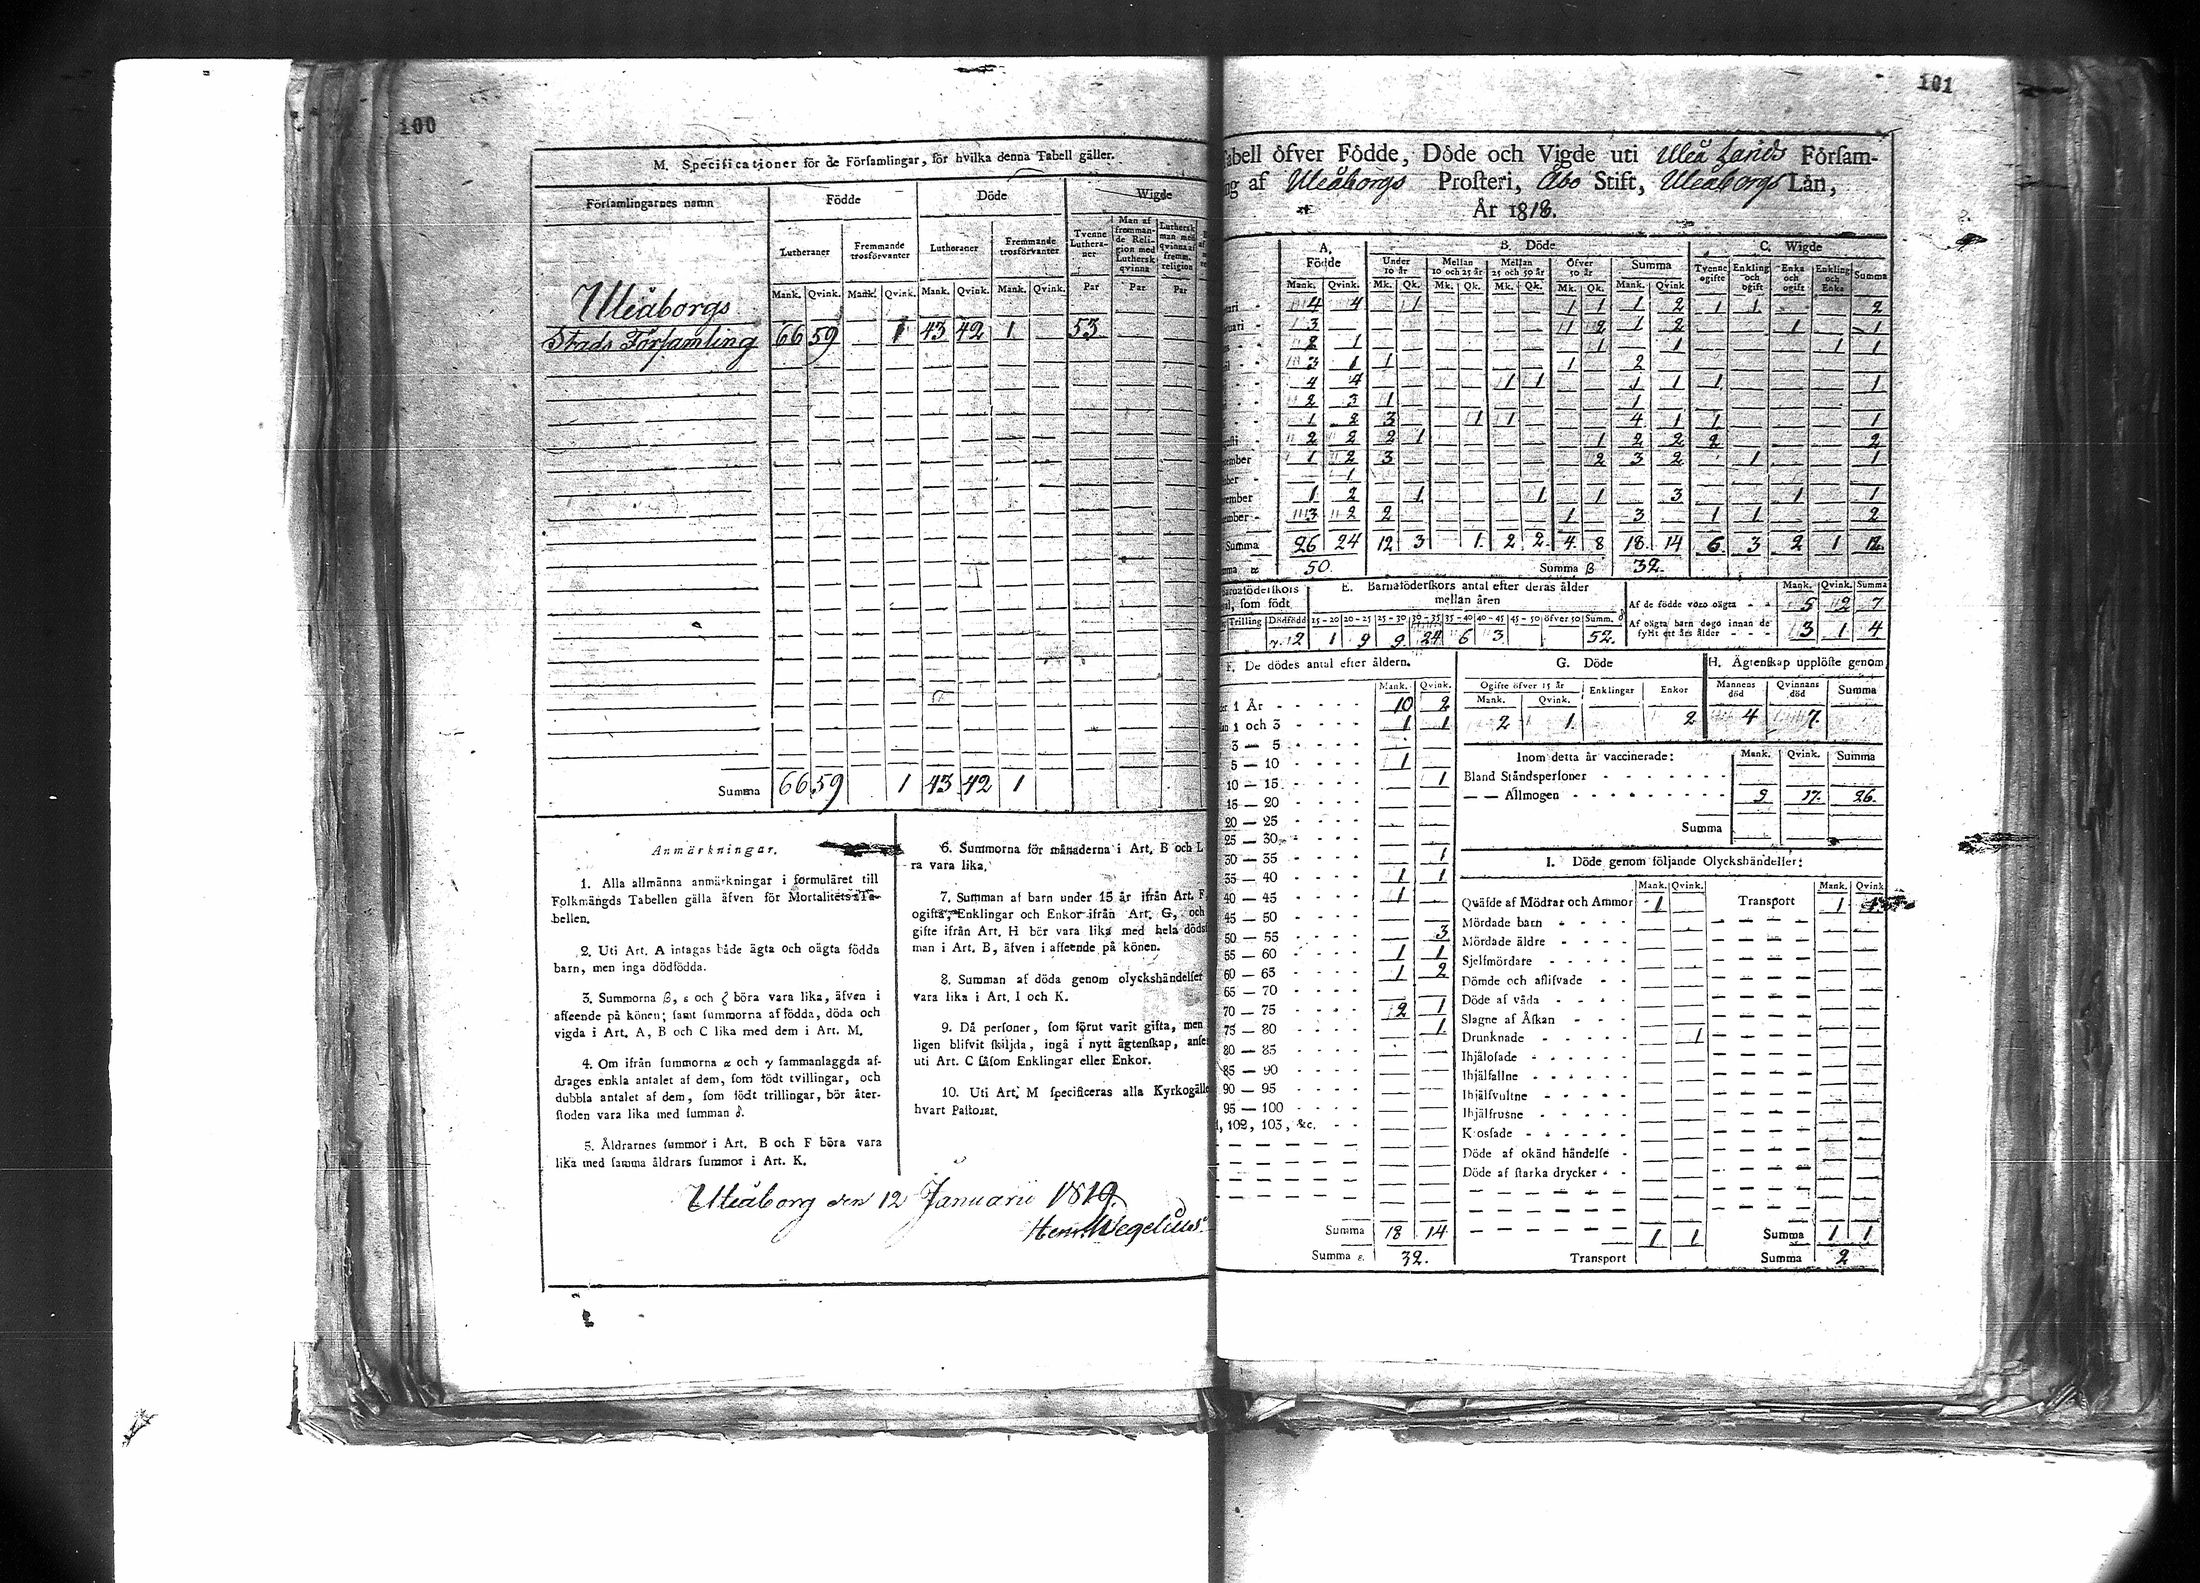 100
M. Specificationer för de Församlingar, för hvilka denna Tabell gäller.
Församlingarnes namn
Födde
Döde
Wigde
Lutheraner
Fremmande trosförvanter
Lutheraner
Fremmande trosförvanter
Tvenne Lutheraner
Man af fremmande Religion med Luthersk qvinna
Luthersk man med qvinna af fremm. religion
Mank. Qvink. Mank. Qvink. Mank. Qvink. Mank. Qvink. Par Par Par
Uleåborgs
Stads Församling 66 59 — 1 43 42 1 53
Summa 66 59 1 43 42 1
Anmärkningar.
1. Alla allmänna anmärkningar i formuläret till
Folkmängds Tabellen gälla äfven för Mortalitets-Ta-
bellen.
2. Uti Art. A intagas både ägta och oägta födda
barn, men inga dödfödda.
3. Summorna β, ε och ζ böra vara lika, äfven i
afseende på könen; samt summorna af födda, döda och
vigda i Art. A, B och C lika med dem i Art. M.
4. Om ifrån summorna α och γ sammanlaggda af-
drages enkla antalet af dem, som födt tvillingar, och
dubbla antalet af dem, som födt trillingar, bör åter-
stoden vara lika med summan δ.
5. Åldrarnes summor i Art. B och F böra vara
lika med samma åldrars summor i Art. K.
6. Summorna för månaderna i Art. B och L
ra vara lika.
7. Summan af barn under 15 år ifrån Art. F,
ogifta, Enklingar och Enkor ifrån Art. G, och
gifte ifrån Art. H bör vara lika med hela döds
man i Art. B, äfven i afseende på könen.
8. Summan af döda genom olyckshändelser
vara lika i Art. I och K.
9. Då personer, som förut varit gifta, men
ligen blifvit skiljda, ingå i nytt ägtenskap, anse
uti Art. C såsom Enklingar eller Enkor.
10. Uti Art. M specificeras alla Kyrkogälle
hvart Pastorat.
Uleåborg den 12 Januarii 1819.
Henr. Wegelius
101
Tabell öfver Födde, Döde och Vigde uti Uleå Lands Försam-
ng af Uleåborgs Prosteri, Åbo Stift, Uleåborgs Län,
År 1818.
A. Födde
B. Döde
C. Wigde
Under 10 år
Mellan 10 och 25 år
Mellan 25 och 50 år
Öfver 50 år
Summa
Tvenne ogifte
Enkling och ogift
Enka och ogift
Enkling och Enka
Summa
Mank. Qvink. Mk. Qk. Mk. Qk. Mk. Qk. Mk. Qk. Mank. Qvink
uari - 4 4 — 1 — — — — 1 1 1 2 1 1 — — 2
ruari - 3 — — — — — — — 1 2 1 2 — — 1 — 1
2 1 — — — — — — — 1 — 1 — — — 1 1
3 1 1 — — — — — 1 — 2 —
4 4 — — — — 1 1 — — 1 1 1 — — — 1
2 3 1 — — — — — — — 1 —
1 2 3 — — 1 1 — — — 4 1 1 — — — 1
usti - 2 2 2 1 — — — — — 1 2 2 2 — — — 2
tember 1 2 3 — — — — — — 2 3 2 — 1 — — 1
ober - — 1
vember 1 2 — 1 — — — 1 — 1 — 3 — — 1 — 1
ember - 3 2 2 — — — — — 1 — 3 — 1 1 — — 2
Summa 26 24 12 3 1. 2. 2. 4. 8 18. 14 6 3 2 1 12.
mma α 50. Summa β 32.
Barnaföderskors
l, som födt
Trilling Dödfödd
2
E. Barnaföderskors antal efter deras ålder
mellan åren
15-20 20-25 25-30 30-35 35-40 40-45 45-50 öfver 50 Summ. δ
1 9 9 24 6 3 52.
Mank. Qvink. Summa
Af de födde voro oägta - - 5 2 7
Af oägta barn dogo innan de
fyllt ett års ålder - - - 3 1 4
F. De dödes antal efter åldern.
Mank. Qvink.
1 År - - - - - 10 2
1 och 3 - - - - 1 1
3 — 5 - - - -
5 — 10 - - - - 1
10 — 15 - - - - 1
15 — 20 - - - -
20 — 25 - - - -
25 — 30 - - - -
30 — 35 - - - - 1
35 — 40 - - - - 1 1
40 — 45 - - - - 1
45 — 50 - - - -
50 — 55 - - - - 3
55 — 60 - - - - 1 1
60 — 65 - - - - 1 2
65 — 70 - - - -
70 — 75 - - - - 2 1
75 — 80 - - - - 1.
80 — 85 - - - -
85 — 90 - - - -
90 — 95 - - - -
95 — 100 - - - -
, 102, 103, &c. - -
Summa 18 14
Summa ε. 32.
G. Döde
Ogifte öfver 15 år
Enklingar
Enkor
Mank. Qvink.
2 1. 2
H. Ägtenskap upplöste genom
Mannens död
Qvinnans död
Summa
4 7.
Inom detta år vaccinerade: Mank. Qvink. Summa
Bland Ståndspersoner - - - - - - -
— — Allmogen - - - - - - - - 9 17. 26.
Summa
I. Döde genom följande Olyckshändelser:
Mank. Qvink. Mank. Qvink
Qväfde af Mödrar och Ammor 1 — Transport 1
Mördade barn - - - - -
Mördade äldre - - - -
Sjelfmördare - - - - -
Dömde och aflifvade - -
Döde af våda - - - -
Slagne af Åskan - - -
Drunknade - - - - - — 1
Ihjälosade - - - - -
Ihjälfallne - - - - -
Ihjälsvultne - - - - -
Ihjälfrusne - - - - -
Krossade - - - - - -
Döde af okänd händelse -
Döde af starka drycker - -
1 1 Summa 1 1
Transport Summa 2